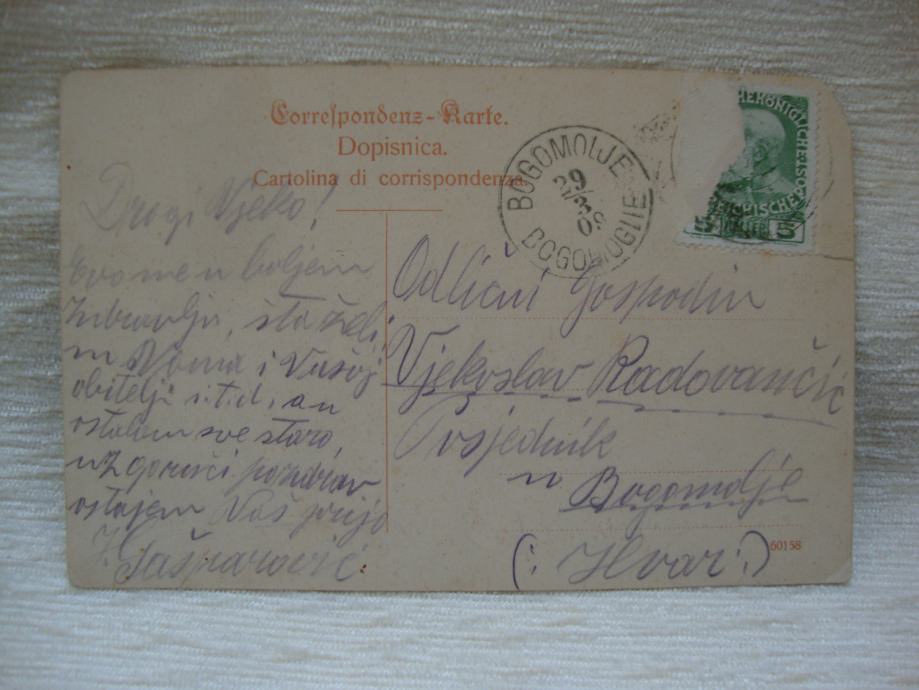 Correspondenz-Karte.
Dopisnica.
Cartolina di corrispondenza
BOGOMOLJE
29/3
09
BOGOMOGLIE
5
Drogi Vjeko!
Evo me u boljem
zdravlju, što želi
m Vama i Vašoj
obitelji i.t.d., a u
ostalom sve staro,
uz gorući pozdrav
ostajem Vaš prija
Gašparović
Odlični Gospodin
Vjekoslav Radovančić
Posjednik
u Bogomolje
(: Hvar :)
60158